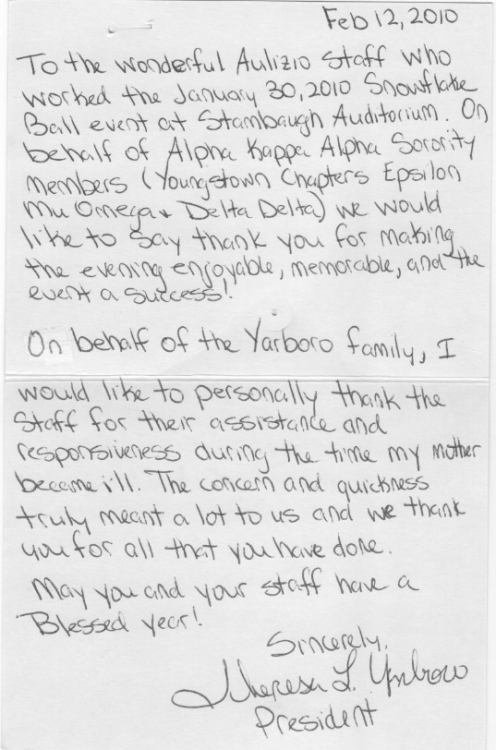 Feb 12, 2010
To the wonderful Aulizio Staff who
worked the January 30, 2010 Snowflake
Ball event at Stambaugh Auditorium. On
behalf of Alpha Kappa Alpha Sorority
Members (Youngstown Chapters Epsilon
Mu Omega & Delta Delta) we would
like to say thank you for making
the evening enjoyable, memorable, and the
event a success!
On behalf of the Yarboro family, I
would like to personally thank the
Staff for their assistance and
responsiveness during the time my mother
became ill. The concern and quickness
truly meant a lot to us and we thank
you for all that you have done.
May you and your staff have a
Blessed year!
Sincerely,
Theresa L. Yarboro
President